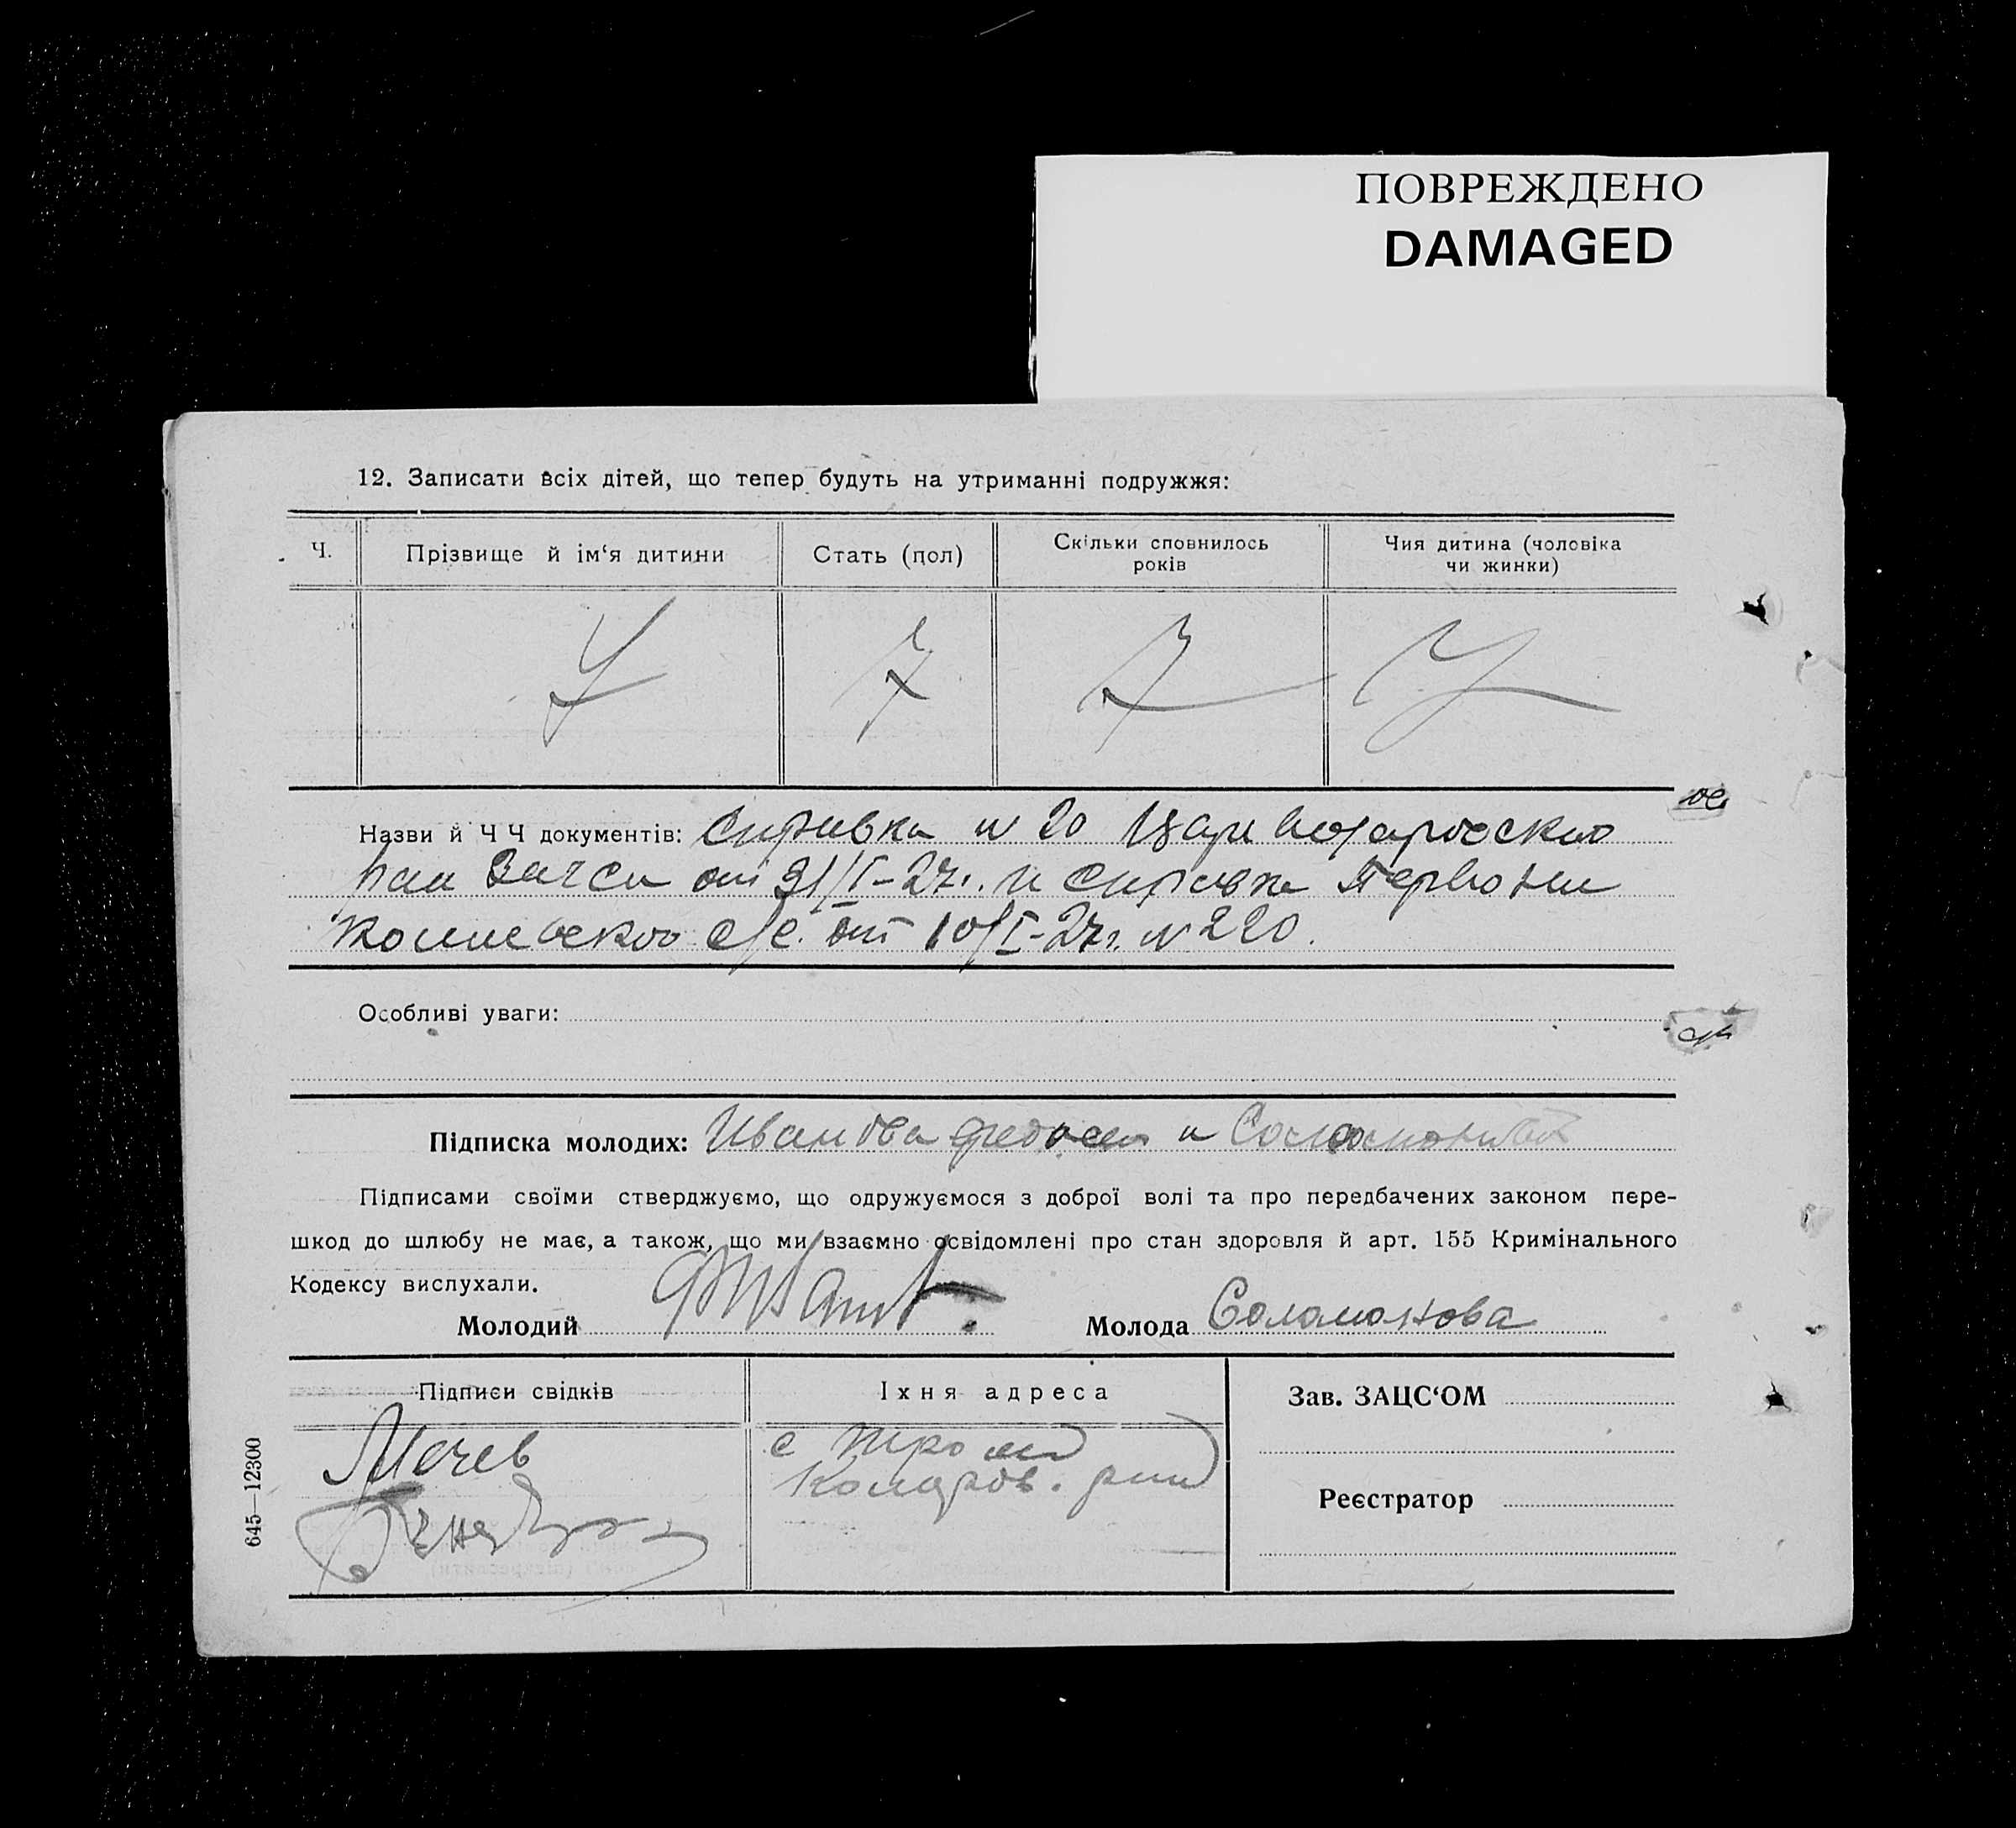 ПОВРЕЖДЕНО
DAMAGED
12. Записати всіх дітей, що тепер будуть на утриманні подружжя:
Ч. Прізвище й ім‘я дитини Стать (пол) Скільки сповнилось років Чия дитина (чоловіка чи жинки)
Назви й Ч Ч документів: Справка № 20
от 31/I-27г. и справка
с/с. от 10/I-27г. № 220.
Особливі уваги:
Підписка молодих: Иванова и
Підписами своїми стверджуємо, що одружуємося з доброї волі та про передбачених законом пере-
шкод до шлюбу не має, а також, що ми взаємно освідомлені про стан здоровля й арт. 155 Кримінального
Кодексу вислухали.
Молодий Молода Соломонова
Підписи свідків Їхня адреса Зав. ЗАЦС‘ОМ
Мечев с
Комаров.
Реєстратор
645—12300